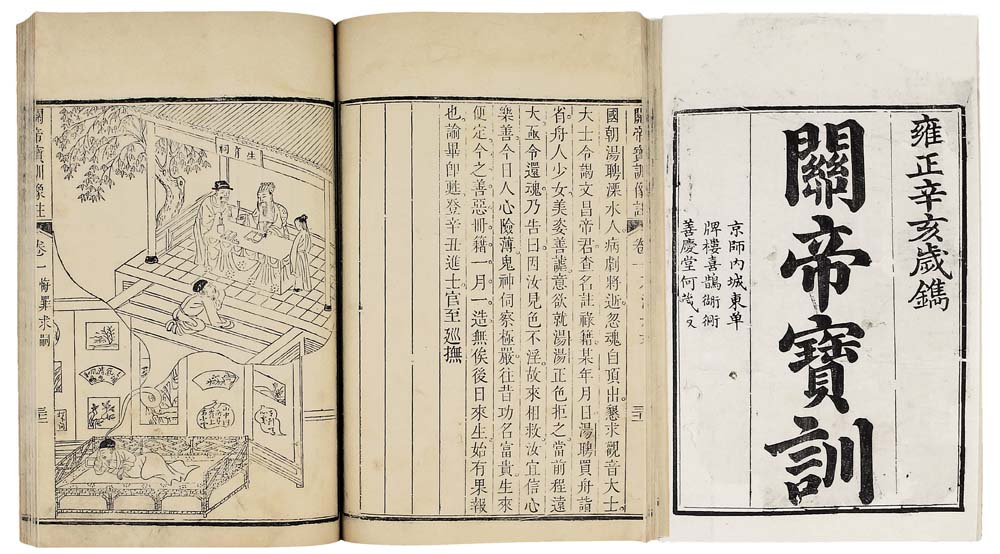 雍正辛亥歲鐫
關帝寶訓
京師內城東单
牌樓喜鵲衚衕
善慶堂何
關帝寶訓像註 卷一
國朝湯聘溧水人病劇將逝忽魂自頂出懇求觀音大士
大士令謁文昌帝君查名註祿籍某年月日湯聘買舟詣
省舟人少女美姿善謔意欲就湯湯正色拒之當前程遠
大亟令還魂乃告曰因汝見色不淫故來相救汝宜信心
樂善今日人心險薄鬼神伺察極嚴往昔功名富貴生來
便定今之善惡冊籍一月一造無俟後日來生始有果報
也諭畢卽甦登辛丑進士官至廵撫
生育祠
關帝寶訓像註 卷一 悔罪求嗣